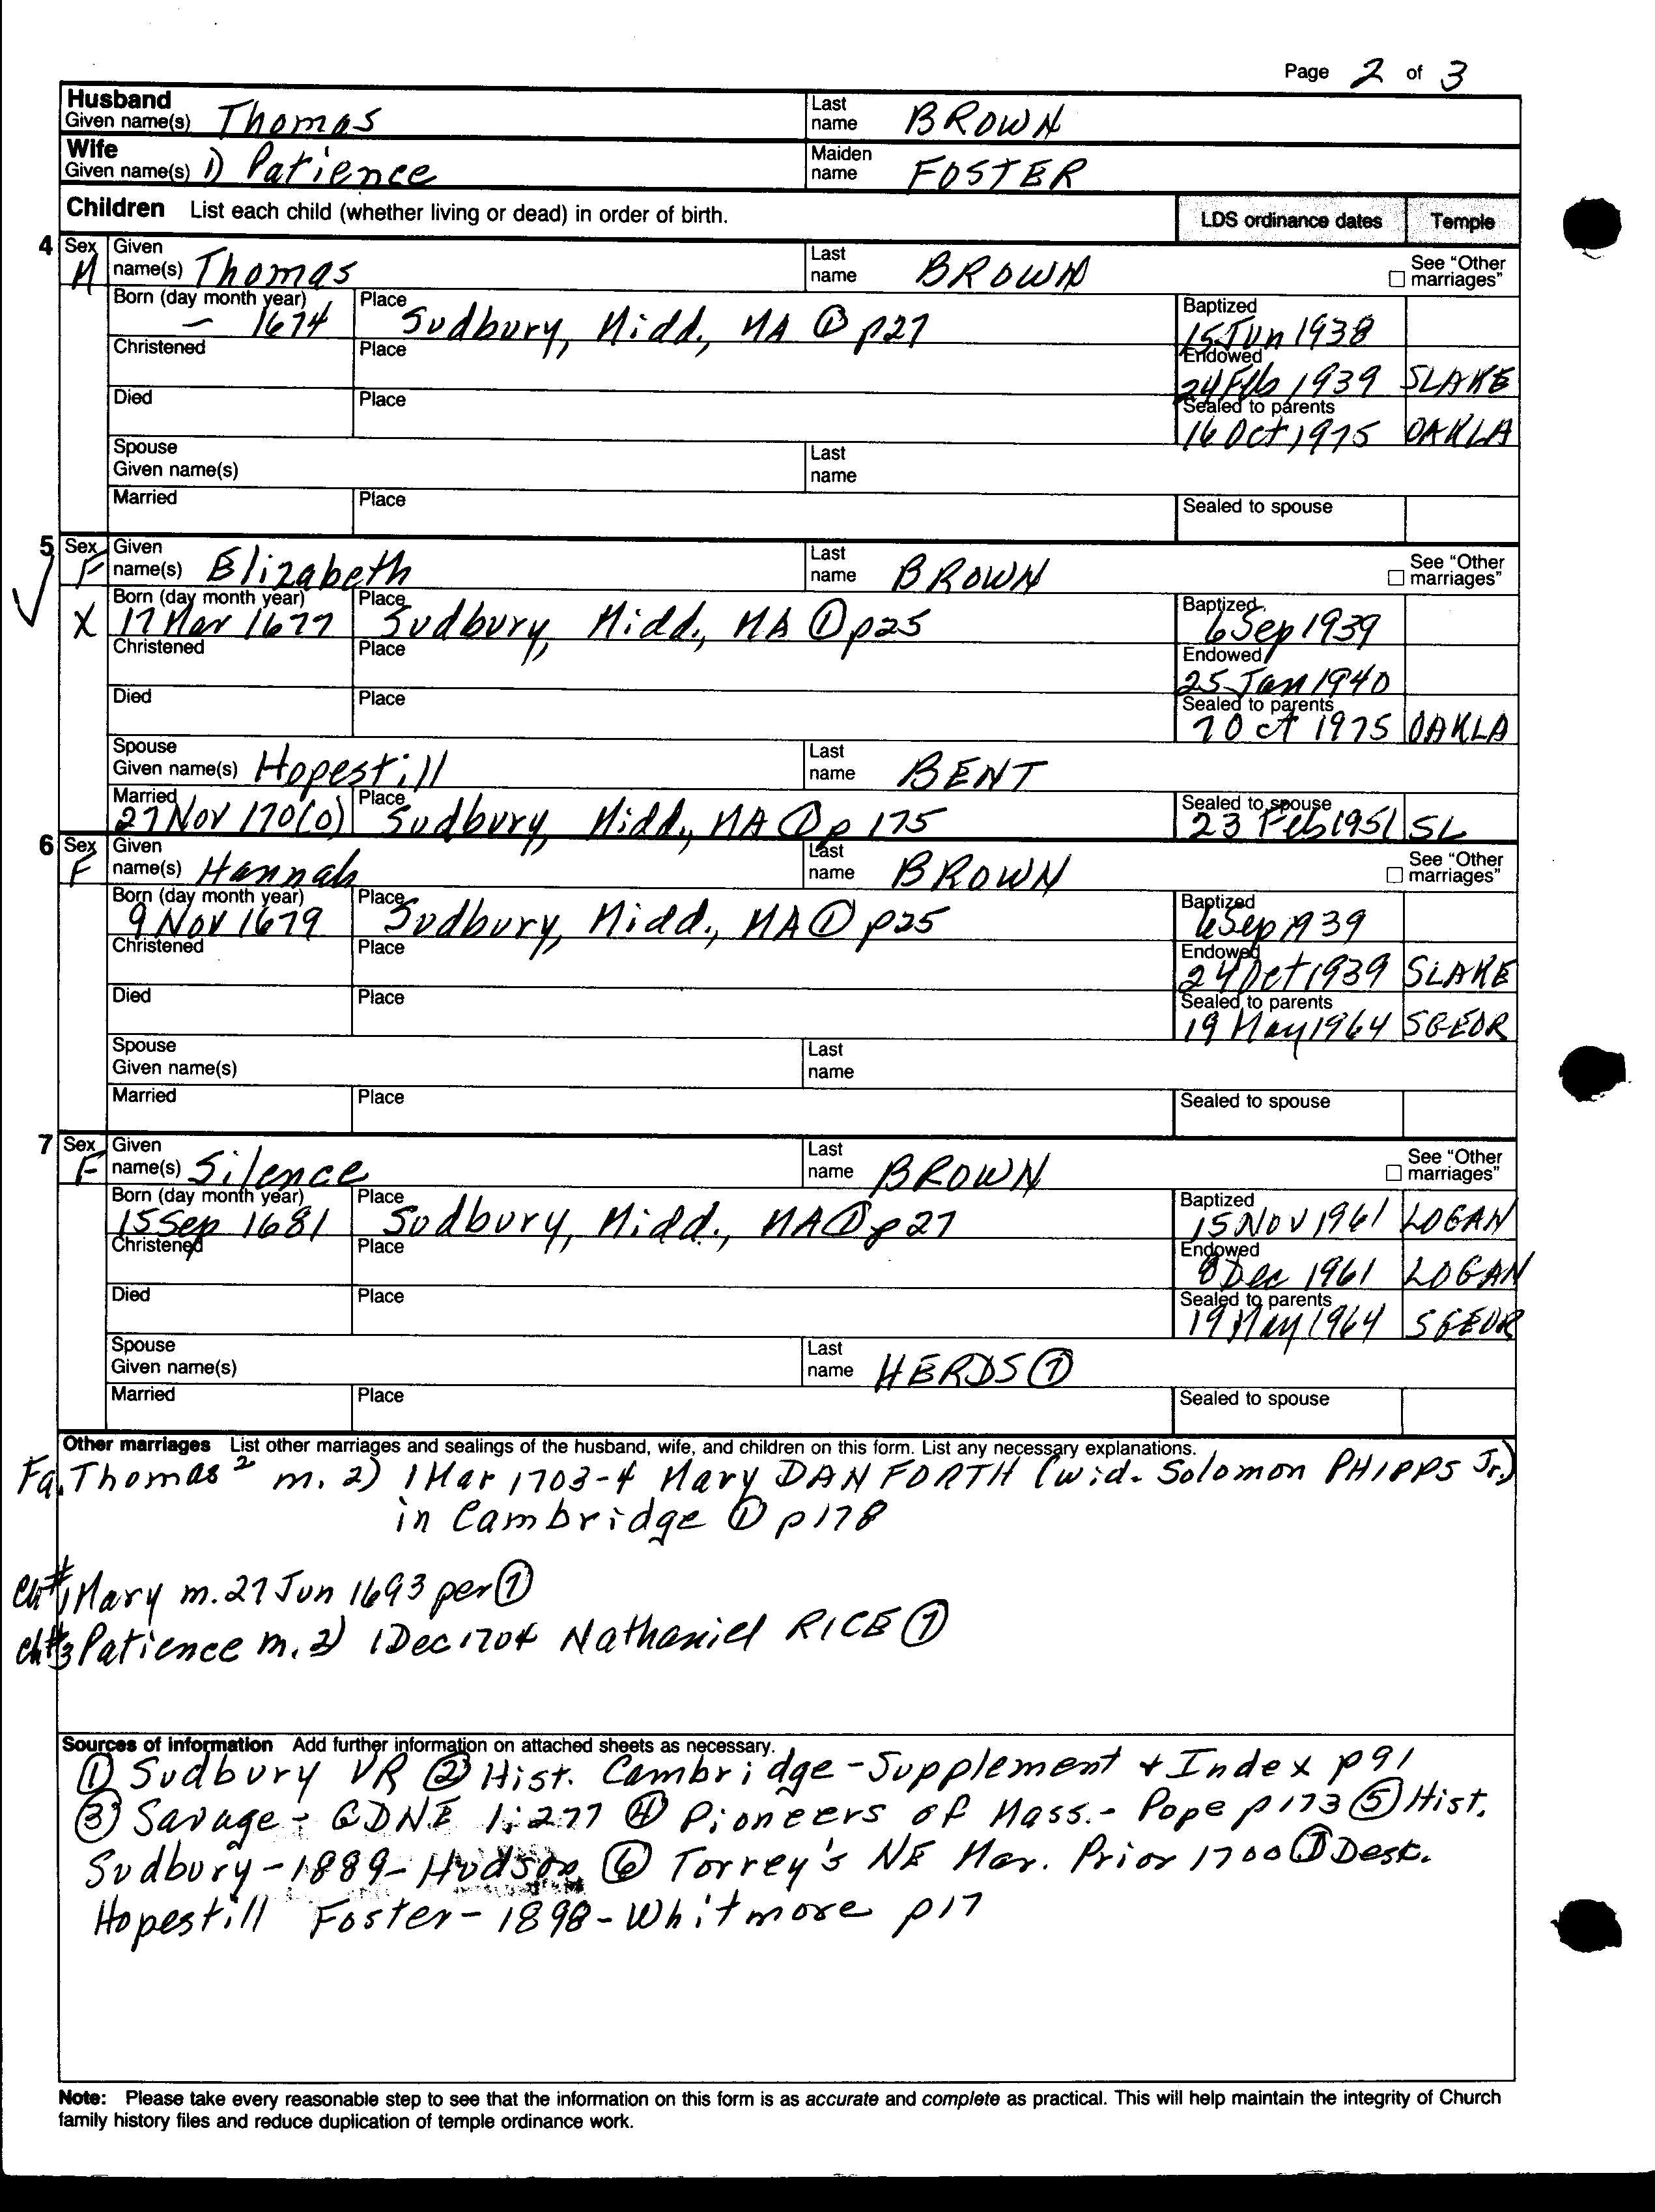 Page 2 of 3
Husband Given name(s) Thomas Last name BROWN
Wife Given name(s) 1) Patience Maiden name FOSTER
Children List each child (whether living or dead) in order of birth. LDS ordinance dates Temple
4 Sex M Given name(s) Thomas Last name BROWN ☐ See "Other marriages"
Born (day month year) – 1674 Place Sudbury, Midd., MA ① p27 Baptized 15 Jun 1938
Christened Place Endowed 24 Feb 1939 SLAKE
Died Place Sealed to parents 16 Oct 1975 OAKLA
Spouse Given name(s) Last name
Married Place Sealed to spouse
5 Sex F Given name(s) Elizabeth Last name BROWN ☐ See "Other marriages"
X Born (day month year) 17 Mar 1677 Place Sudbury, Midd., MA ① p25 Baptized 6 Sep 1939
Christened Place Endowed 25 Jan 1940
Died Place Sealed to parents 7 Oct 1975 OAKLA
Spouse Given name(s) Hopestill Last name BENT
Married 27 Nov 170(0) Place Sudbury, Midd., MA ① p 175 Sealed to spouse 23 Feb 1951 SL
6 Sex F Given name(s) Hannah Last name BROWN ☐ See "Other marriages"
Born (day month year) 9 Nov 1679 Place Sudbury, Midd., MA ① p25 Baptized 6 Sep 1939
Christened Place Endowed 24 Oct 1939 SLAKE
Died Place Sealed to parents 19 May 1964 SGEOR
Spouse Given name(s) Last name
Married Place Sealed to spouse
7 Sex F Given name(s) Silence Last name BROWN ☐ See "Other marriages"
Born (day month year) 15 Sep 1681 Place Sudbury, Midd., MA ① p 27 Baptized 15 Nov 1961 LOGAN
Christened Place Endowed 8 Dec 1961 LOGAN
Died Place Sealed to parents 19 May 1964 SGEOR
Spouse Given name(s) Last name HERDS ⑦
Married Place Sealed to spouse
Other marriages List other marriages and sealings of the husband, wife, and children on this form. List any necessary explanations.
Fa. Thomas² m. 2) 1 Mar 1703-4 Mary DANFORTH (wid. Solomon PHIPPS Jr.)
in Cambridge ① p178
ch#1 Mary m. 27 Jun 1693 per ⑦
ch#3 Patience m. 2) 1 Dec 1704 Nathaniel RICE ⑦
Sources of information Add further information on attached sheets as necessary.
① Sudbury VR ② Hist. Cambridge - Supplement + Index p91
③ Savage - GDNE 1:277 ④ Pioneers of Mass. - Pope p173 ⑤ Hist.
Sudbury - 1889 - Hudson ⑥ Torrey's NE Mar. Prior 1700 ⑦ Desc.
Hopestill Foster - 1898 - Whitmore p17
Note: Please take every reasonable step to see that the information on this form is as accurate and complete as practical. This will help maintain the integrity of Church
family history files and reduce duplication of temple ordinance work.